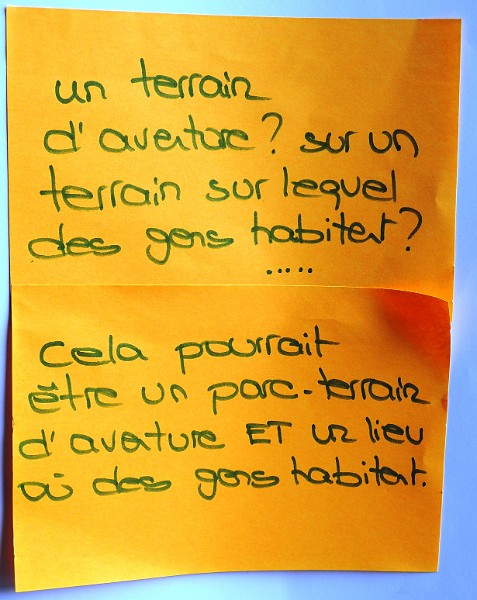 un terrain
d'aventure? sur un
terrain sur lequel
des gens habitent?
.....
Cela pourrait
être un parc-terrain
d'aventure ET un lieu
où des gens habitent.